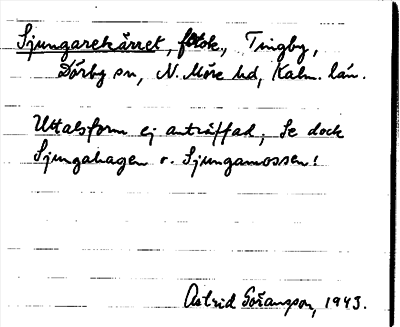 Sjungarekärret, ftok., Tingby,
Dörby sn, N. Möre hd, Kalm. län.
Uttalsform ej anträffad; Se dock
Sjungahagen o. Sjungamossen!
Astrid Göransson, 1943.